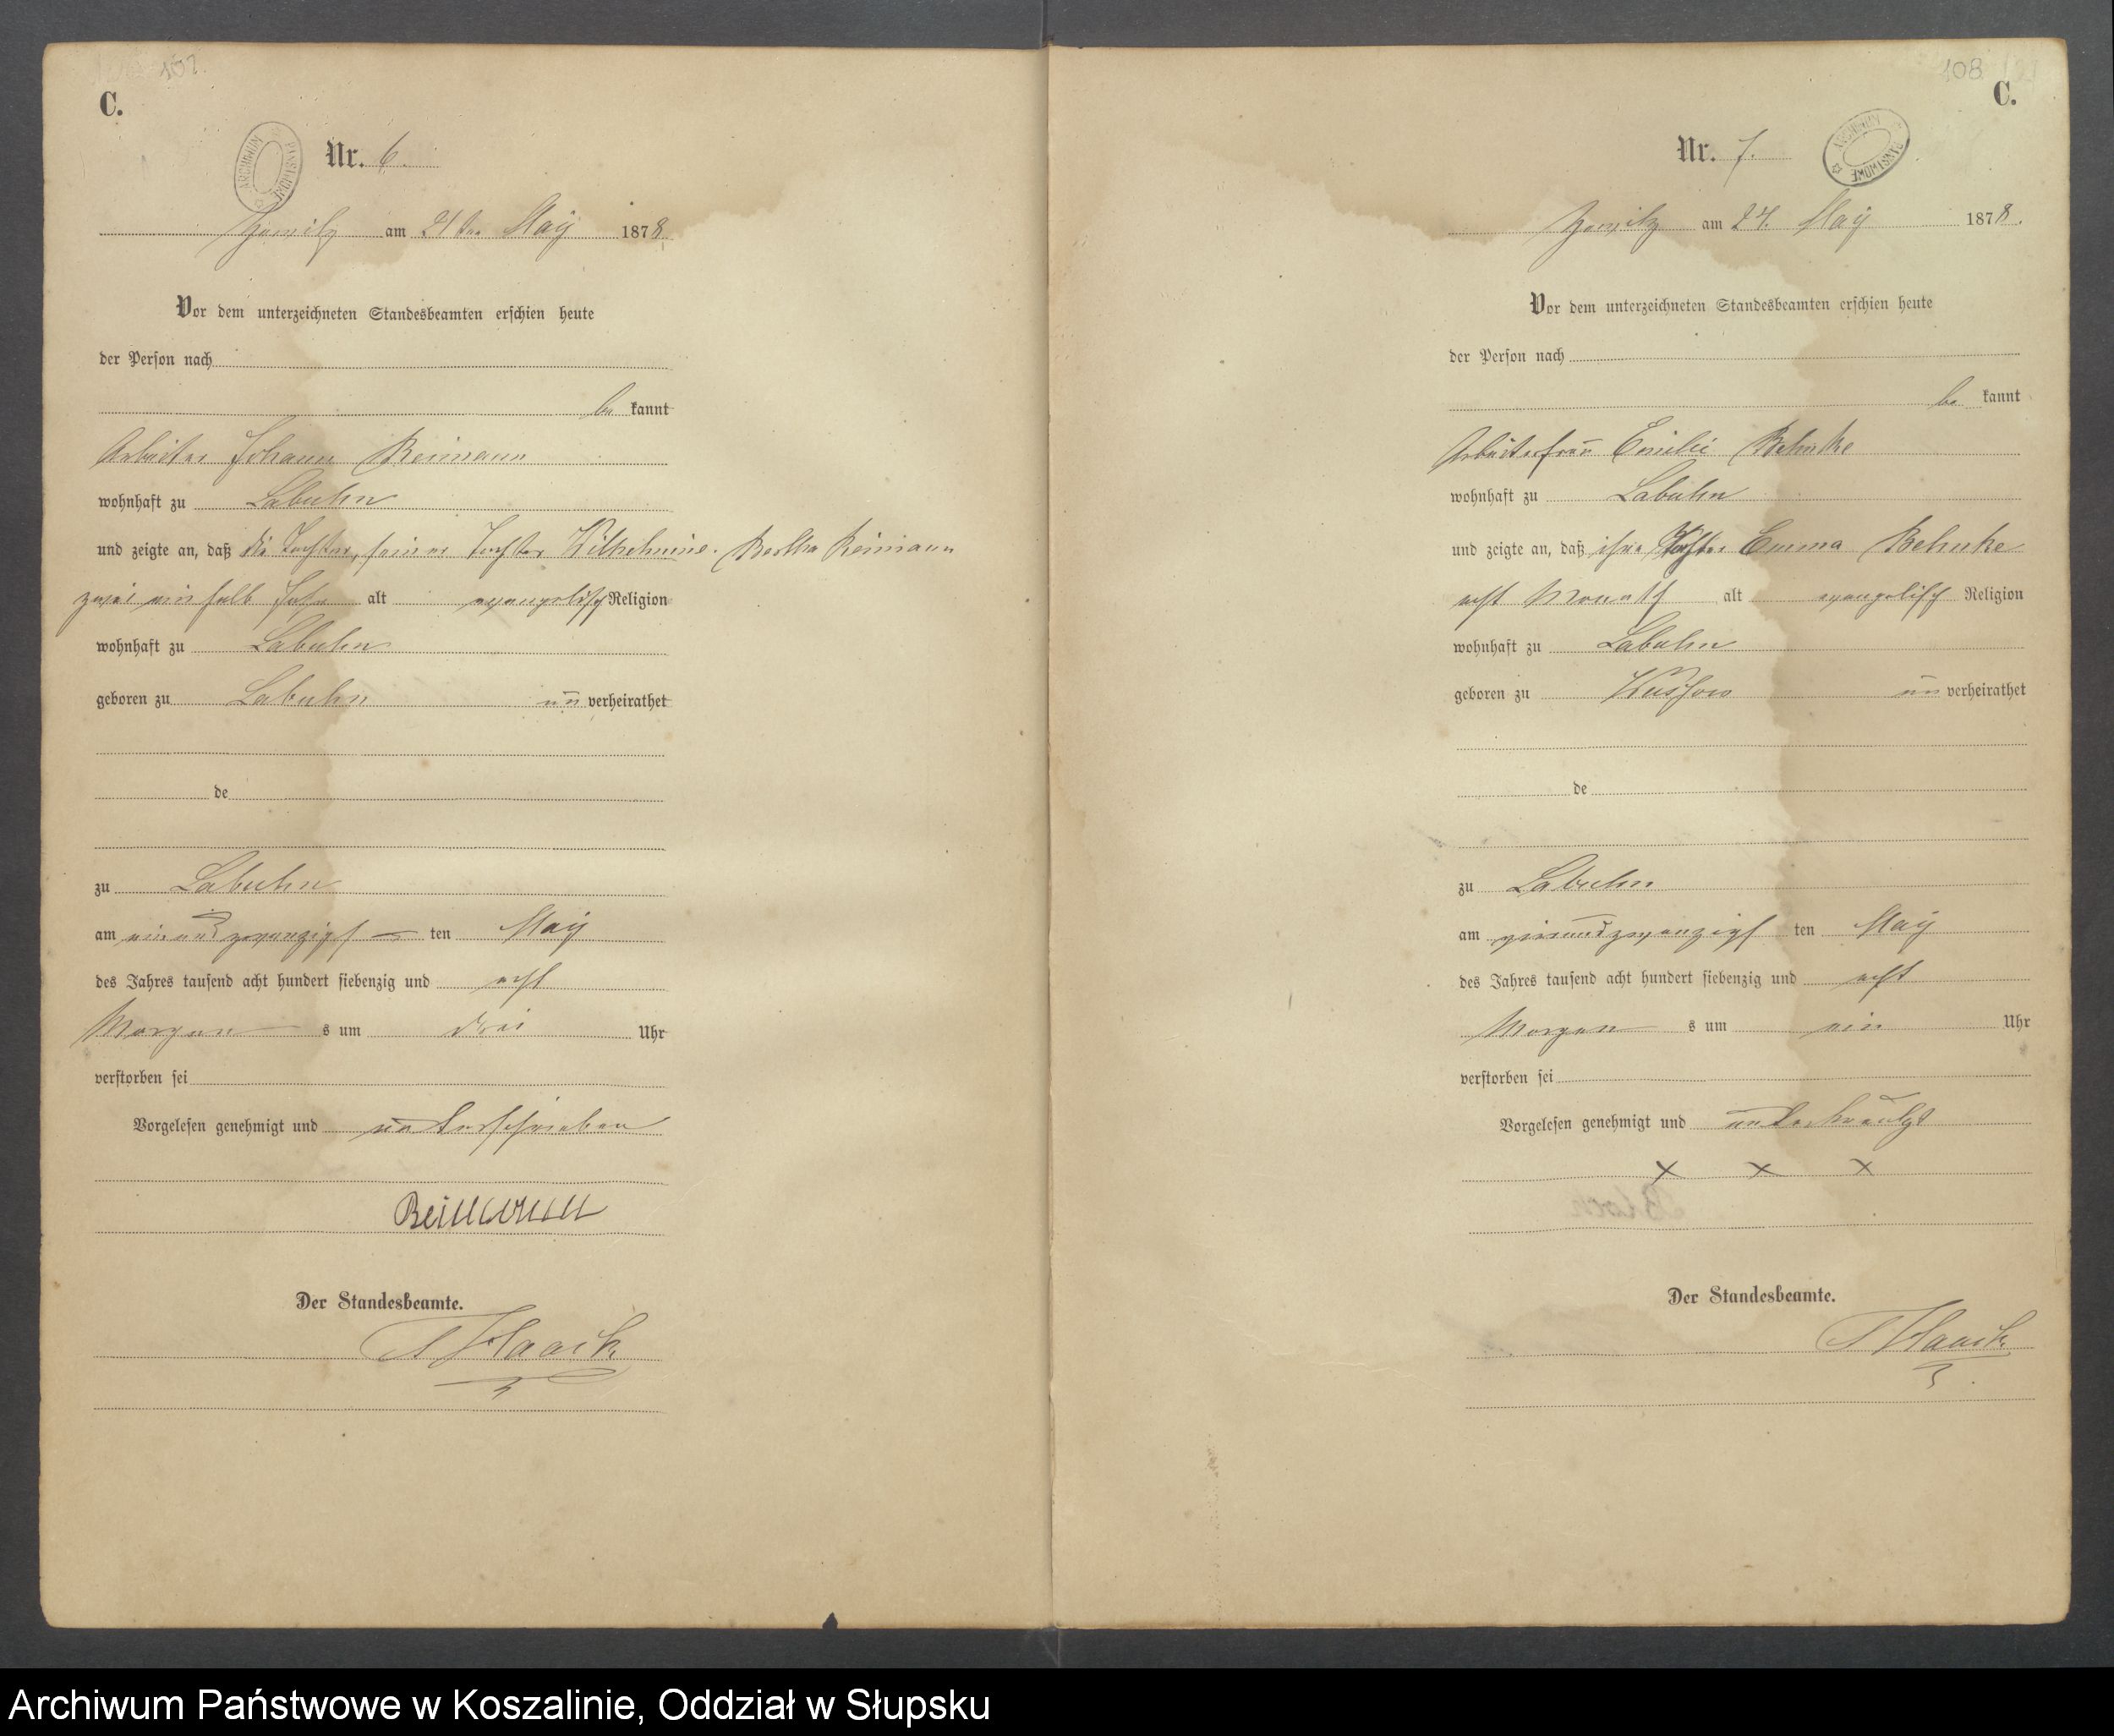 107
C.
Nr. 6.
ARCHIWUM PAŃSTWOWE
am 21ten May 1878
Vor dem unterzeichneten Standesbeamten erschien heute
der Person nach
be kannt
Arbeiter Johann Reimann
wohnhaft zu Labuhn
und zeigte an, daß die Tochter, seiner Tochter Wilhelmine. Bertha Reimann
zwei ein halb Jahr alt evangelisch Religion
wohnhaft zu Labuhn
geboren zu Labuhn un verheirathet
de
zu Labuhn
am einundzwanzigst ten May
des Jahres tausend acht hundert siebenzig und acht
Morgen s um drei Uhr
verstorben sei
Vorgelesen genehmigt und unterschrieben
Reimann
Der Standesbeamte.
Haack
108
C.
Nr. 7.
ARCHIWUM PAŃSTWOWE
am 24. May 1878.
Vor dem unterzeichneten Standesbeamten erschien heute
der Person nach
be kannt
Arbeiterfrau Emilie Behnke
wohnhaft zu Labuhn
und zeigte an, daß ihre Tochter Emma Behnke
acht Monath alt evangelisch Religion
wohnhaft zu Labuhn
geboren zu Wussow un verheirathet
de
zu Labuhn
am vierundzwanzigst ten May
des Jahres tausend acht hundert siebenzig und acht
Morgen s um ein Uhr
verstorben sei
Vorgelesen genehmigt und unterkreuzt
x x x
Der Standesbeamte.
Haack
Archiwum Państwowe w Koszalinie, Oddział w Słupsku